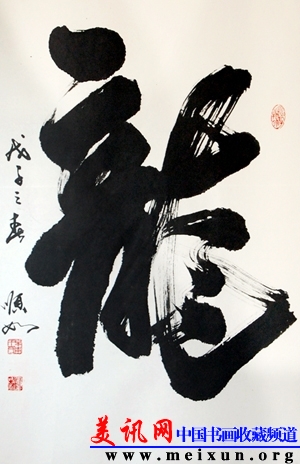 龍
戊子之春
順如
美讯网 中国书画收藏频道
www.meixun.org